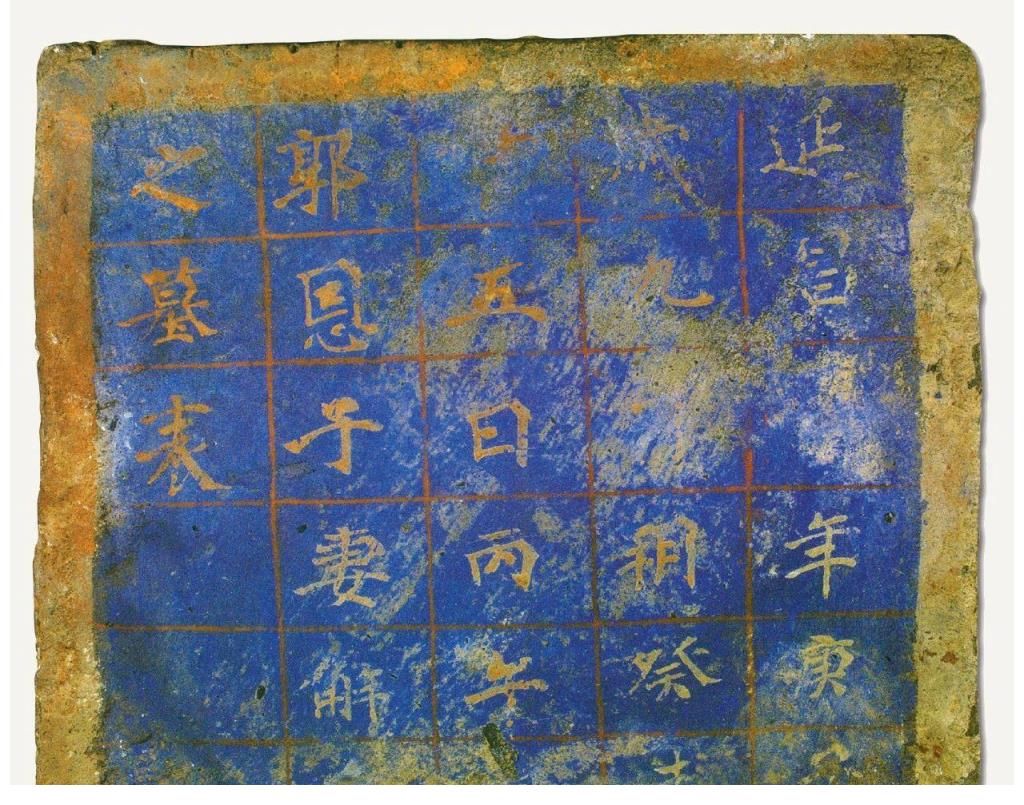 延昌年庚
歲九朔癸
五日丙午
郭恩子妻解
之墓表